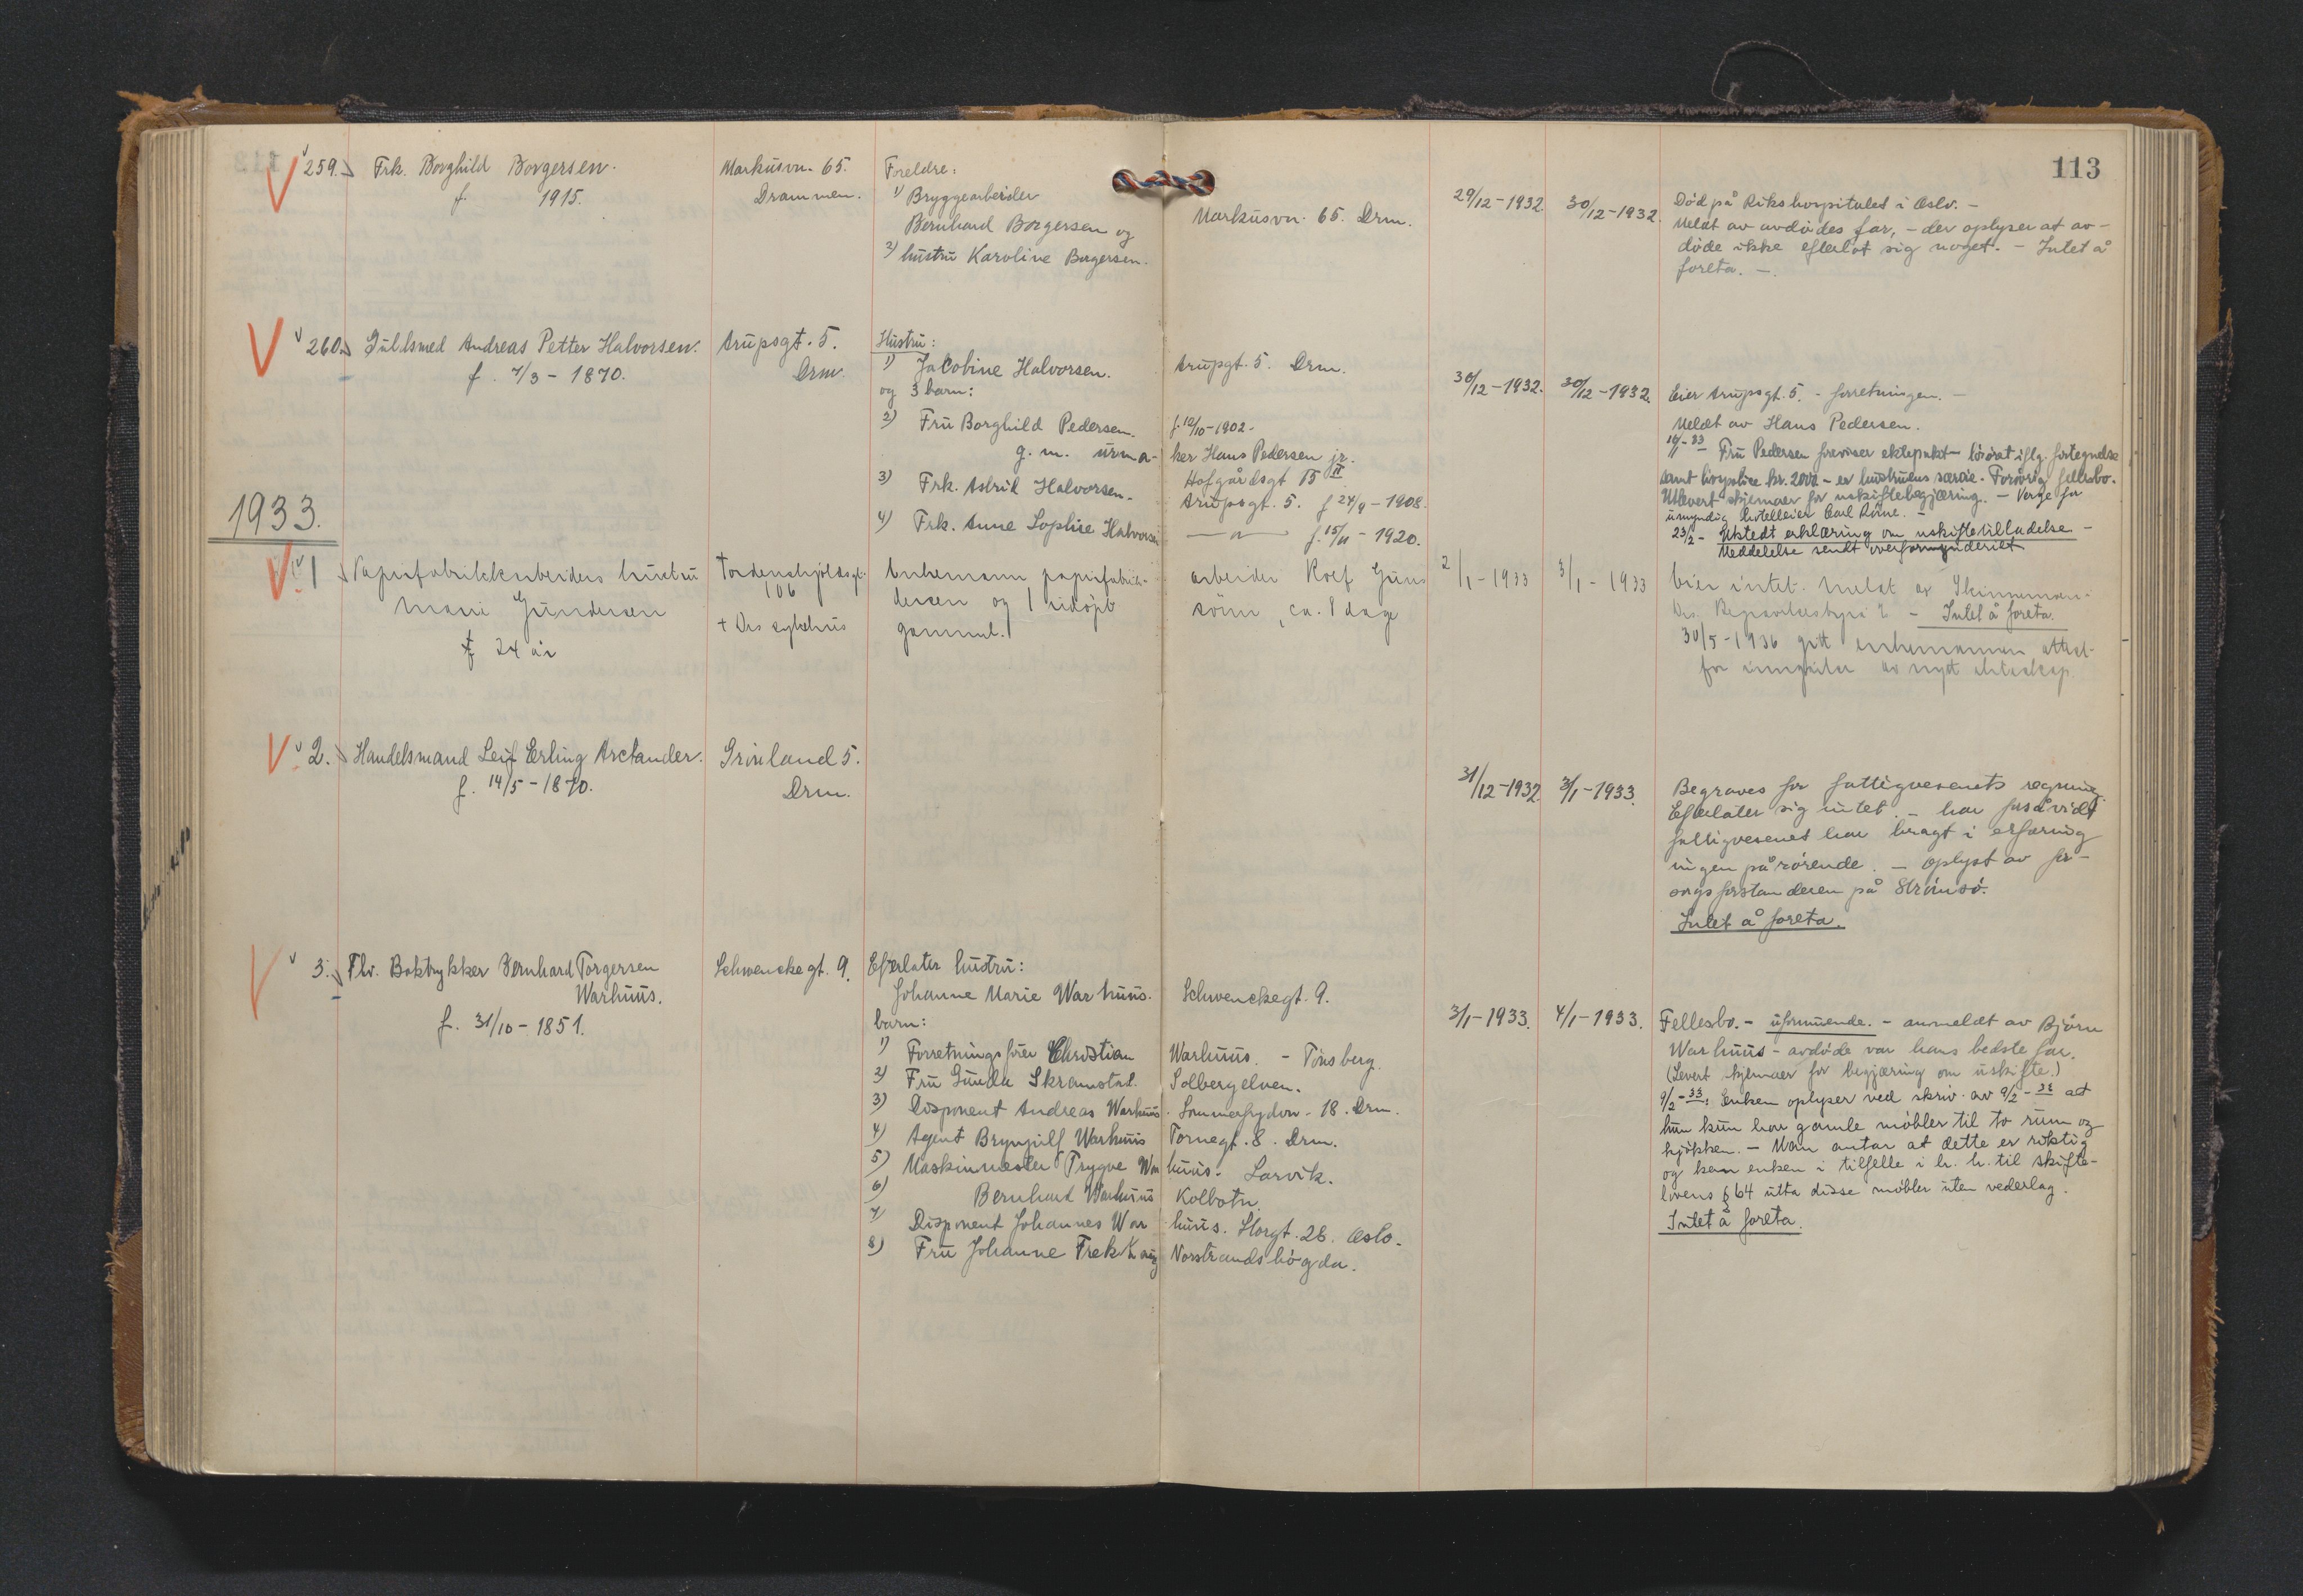 113
259. Frk. Borghild Borgersen.
f. 1915.
Markusvn. 65.
Drammen.
Foreldre:
1) Bryggearbeider
Bernhard Borgersen og
2) hustru Karoline Borgersen.
Markusvn. 65. Drm.
29/12-1932.
30/12-1932.
Død på Rikshospitalet i Oslo. -
Meldt av avdødes far, - der oplyser at av-
døde ikke efterlot sig noget. - Intet å
foreta. -
260. Gullsmed Andreas Petter Halvorsen.
f. 7/3 - 1870.
Arupsgt. 5.
Drm.
Hustru:
1) Jacobine Halvorsen.
og 3 barn:
2) Fru Borghild Pedersen.
g. m. urma-
3) Frk. Astrid Halvorsen.
4) Frk. Anne Sophie Halvorsen
Arupgt. 5. Drm.
f. 12/10-1902-
ker Hans Pedersen jr.
Hofgårdsgt 15 II
Arupsgt. 5. f 24/9-1908.
- " - f. 15/11-1920.
30/12-1932.
30/12-1932.
Eier Arupsgt. 5. - forretningen. -
Meldt av Hans Pedersen.
Fru Pedersen foreviser ektepakt - løsøret iflg. fortegnelse
samt livspolice kr. 2000 - er hustruens særeie. Forøvrig fellesbo.
Utlevert skjemaer for uskiftebegjæring. - Verge for
umyndig hotelleier Carl
23/2 - Utstedt erklæring om uskiftetilladelse -
Meddelelse sendt overformynderiet
1933.
1 Papirfabrikkarbeiders hustru
Marie Gundersen
f 24 år
Tordenskjoldsgt.
106
+ Drs sykehus
Enkemann papirfabrikk-
dersen og 1 udøpt
gammel.
arbeider Rolf Gun-
sønn, ca. 8 dage
2/1-1933
3/1-1933
Eier intet. Meldt av
Drs. Begravelsesbyrå - Intet å foreta.
30/5-1936 gitt enkemannen attest
for inngåelse av nytt ekteskap.
2. Handelsmand Leif Erling Arctander.
f. 14/5-1870.
Grønland 5.
Drm.
31/12-1932.
3/1-1933.
Begraves for fattigvesenets regning.
Efterlater sig intet. - har forsåvidt
fattigvesenet har bragt i erfaring
ingen pårørende. - Oplyst av for-
sorgsforstanderen på Strømsø.
Intet å foreta.
3. Fhv. Boktrykker Bernhard Torgersen
Warhuus.
f. 31/10-1851.
Schwenckegt. 9.
Efterlater hustru:
Johanne Marie Warhuus.
barn:
1) Forretningsfører Christian
2) Fru Gunda Skramstad.
3) Disponent Andreas Warhuus
4) Agent Brynjulf Warhuus
5) Maskinmester Trygve War
6) Bernhard Warhuus
7) Disponent Johannes War
8) Fru Johanne
Schwenckegt. 9.
Warhuus. - Tønsberg.
Solbergelven.
Sommerfrydvn. 18. Drm.
Tornegt. 8. Drm.
huus. Larvik.
Kolbotn.
huus. Storgt. 26. Oslo.
Norstrandshøgda.
3/1-1933.
4/1-1933.
Fellesbo. - uformuende. - anmeldt av Bjørn
Warhuus - avdøde var hans bestefar.
(Levert skjemaer for begjæring om uskifte.)
9/2-33: Enken oplyser ved skriv. av 9/2-33 at
hun kun har gamle møbler til to rum og
kjøkken. - Man antar at dette er riktig
og kan enken i tilfelle i h. h. til skifte-
lovens § 64 utta disse møbler uten vederlag.
Intet å foreta.